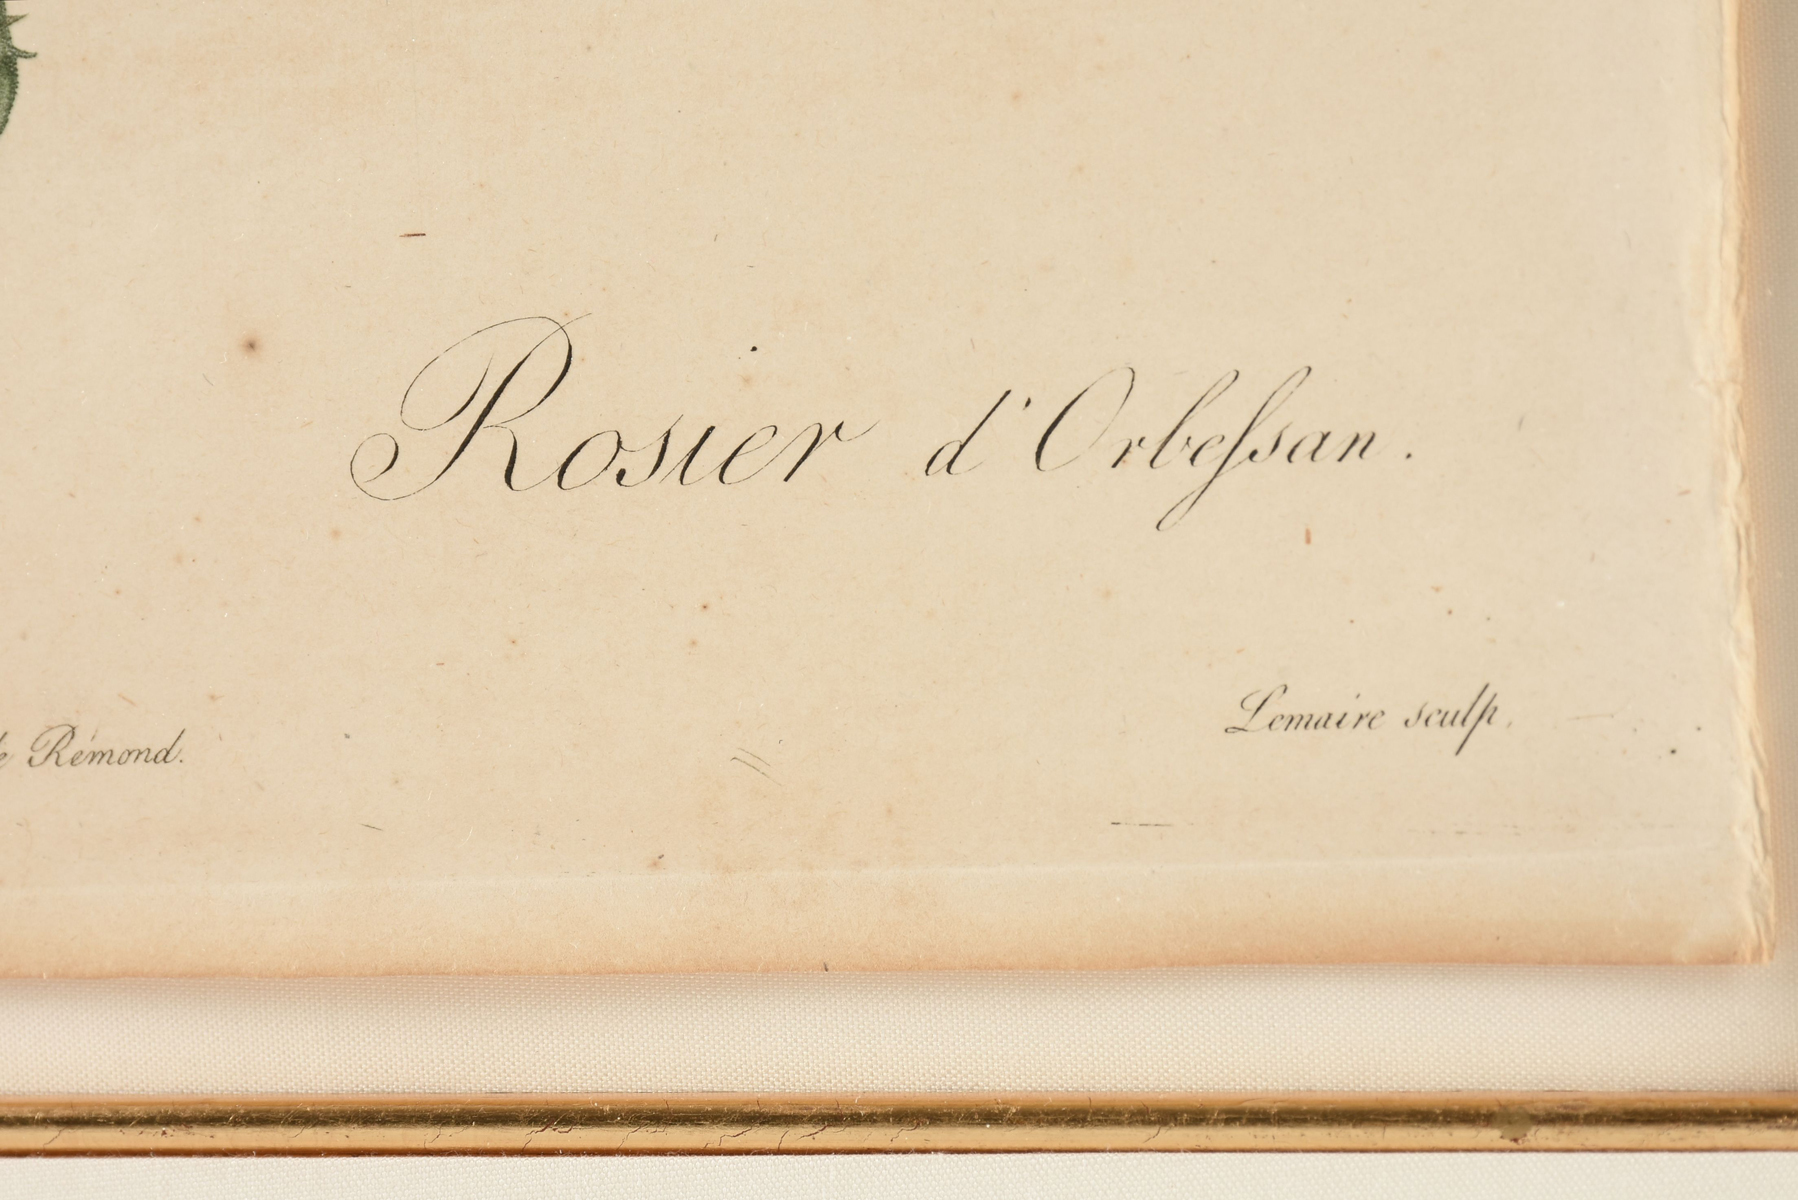 Rosier d'Orbeſsan.
Lemaire sculp.
Rémond.